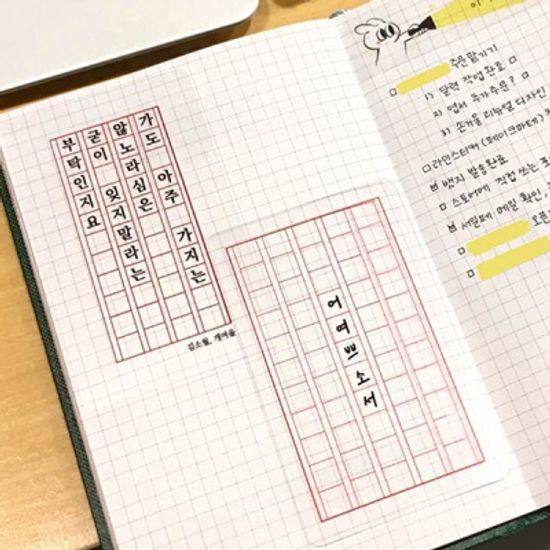 가도 아주 가지는
않노라심은
굳이 잊지말라는
부탁인지요
김소월, 개여울
어여쁘소서
주문 맡기기
1) 달력 작업 완료
2) 엽서 추가주문?
3) 손거울 리뉴얼 디자인
라인스티커(페이크마테)
뱃지 발송완료
스토어에 직접 쓰는
세일페 메일 확인,
오픈